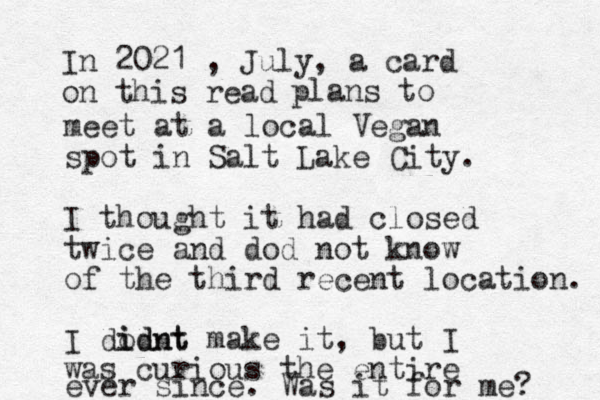 In 2021 , July, a card
on this read plans to
meet at a local Vegan
spot in Salt Lake City.
I thought it had closed
twice and dod not know
of the third recent location.
I didnt make it, but I
was curious the entire
ever since. Was it for me?